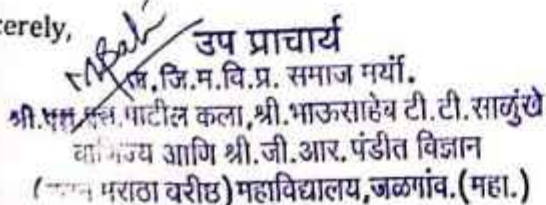 cerely,
उप प्राचार्य
ज.जि.म.वि.प्र. समाज मर्या.
श्री. पाटील कला,श्री.भाऊसाहेब टी.टी.साळुंखे
वाणिज्य आणि श्री.जी.आर.पंडीत विज्ञान
मराठा वरीष्ठ)महाविद्यालय,जळगांव.(महा.)